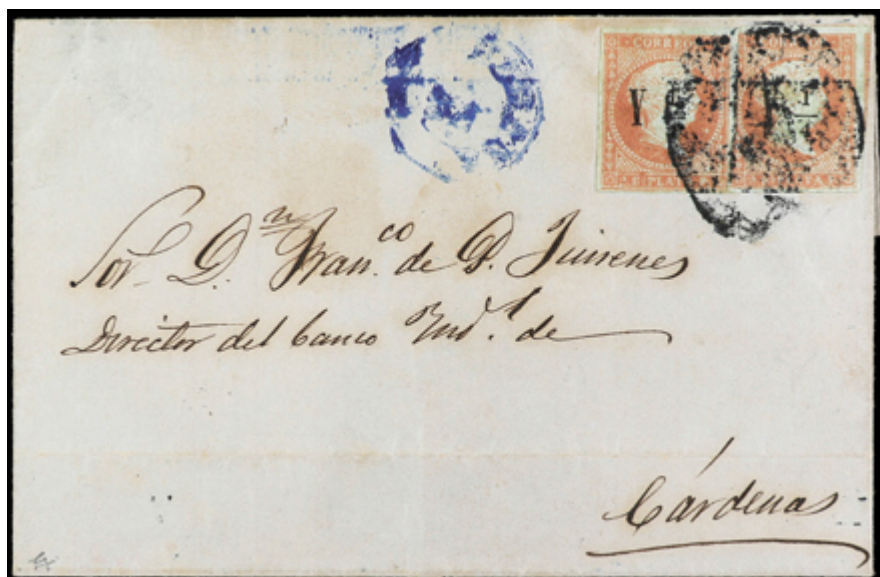 CORREO
Y
Sor. Dn Franco. de P. Jimenes
Director del banco Indl. de
Cárdenas